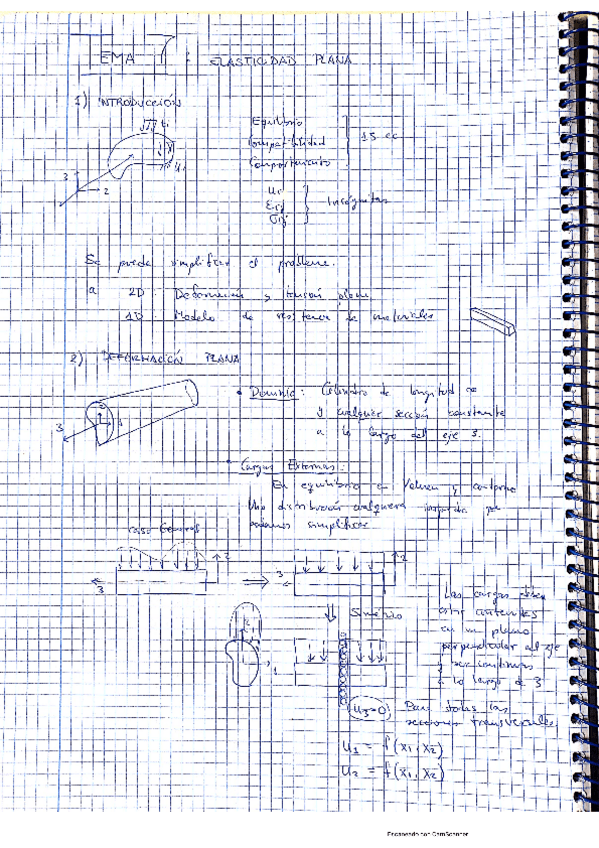 TEMA 7 : ELASTICIDAD PLANA
1) INTRODUCCIÓN
ti
Equilibrio
Compatibilidad
Comportamiento
15 ec
ui
3
2
Ui
Eij
σij
Incógnitas
Se puede simplificar el problema.
a 2D: Deformación y tensión plana
1D: Modelo de resistencia de materiales
2) DEFORMACIÓN PLANA
3
• Dominio: Cilindro de longitud ∞
y cualquier sección constante
a lo largo del eje 3.
• Cargas Externas:
En equilibrio en Volumen y contorno
Una distribución cualquiera
podamos simplificar
Caso General
2
3
⇒
3
2
Las cargas deben
estar contenidas
en un plano
perpendicular al eje
y ser continuas
a lo largo de 3
⇓ Simetría
1
U3=0 Para todas las
secciones transversales.
U1 = f(x1, x2)
U2 = f(x1, x2)
Escaneado con CamScanner